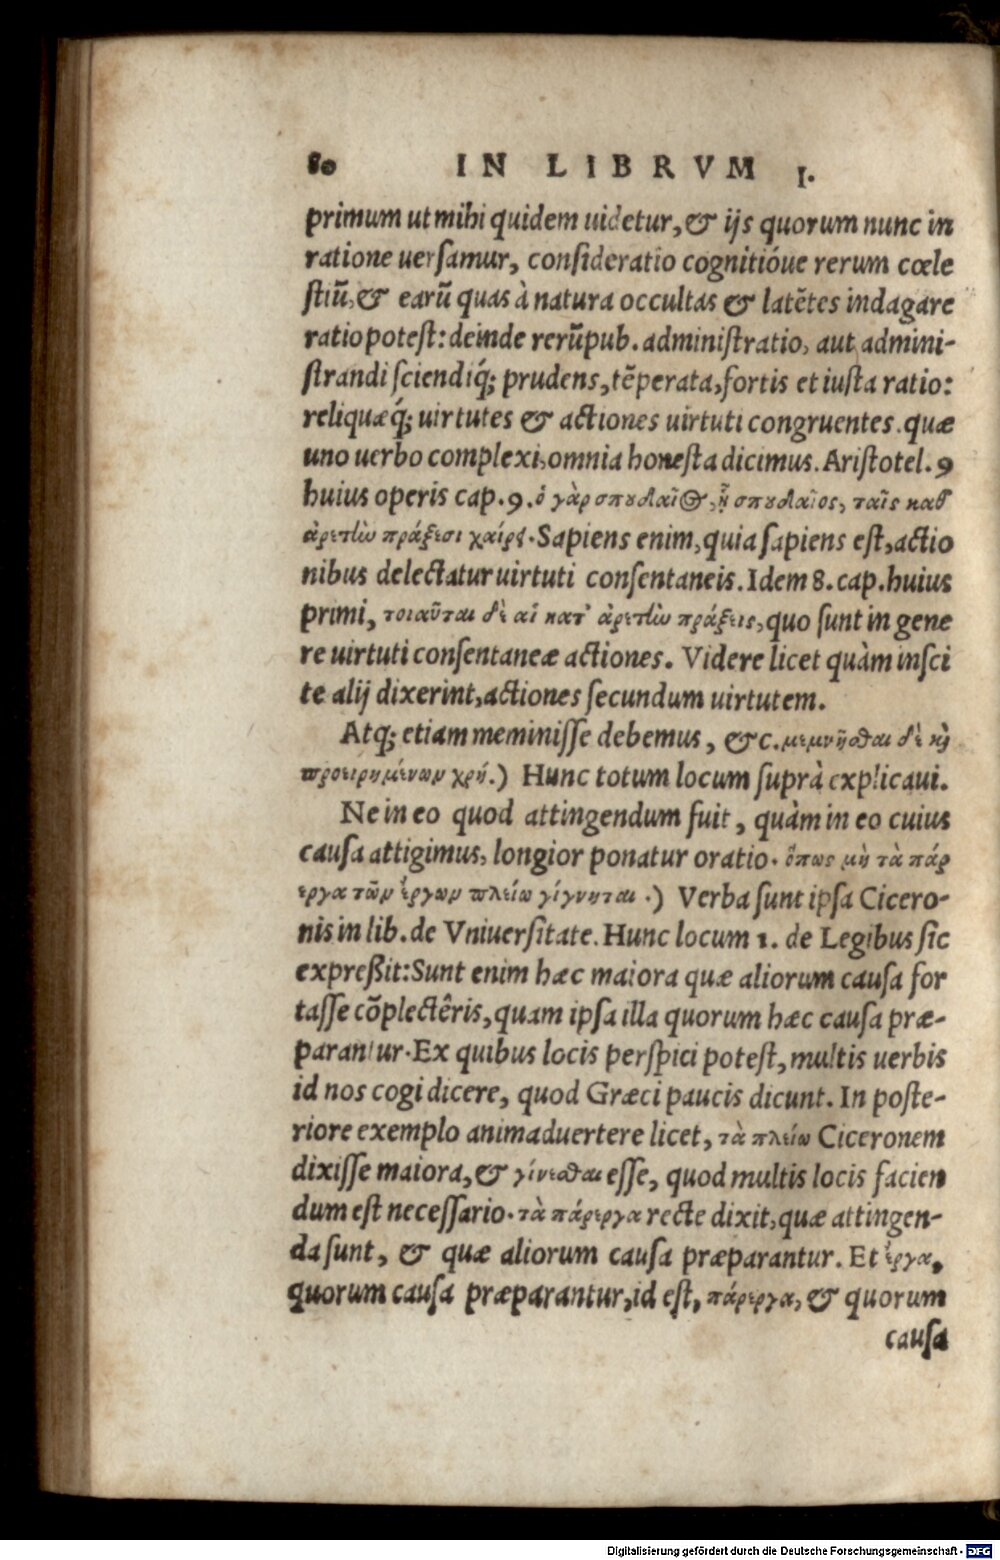 80 IN LIBRVM I.
primum ut mihi quidem uidetur, & ijs quorum nunc in
ratione uersamur, consideratio cognitióue rerum cœle
stiũ, & earũ quas à natura occultas & latẽtes indagare
ratio potest: deinde rerũpub. administratio, aut admini-
strandi sciendiq́; prudens, tẽperata, fortis et iusta ratio:
reliquæq́; uirtutes & actiones uirtuti congruentes. quæ
uno uerbo complexi, omnia honesta dicimus. Aristotel. 9
huius operis cap. 9. ὁ γὰρ σπουδαῖος, ᾗ σπουδαῖος, ταῖς καθ'
ἀρετὼ πράξεσι χαίρει. Sapiens enim, quia sapiens est, actio
nibus delectatur uirtuti consentaneis. Idem 8. cap. huius
primi, τοιαῦται δὲ αἱ κατ' ἀρετὼ πράξεις, quo sunt in gene
re uirtuti consentaneæ actiones. Videre licet quàm insci
te alij dixerint, actiones secundum uirtutem.
Atq; etiam meminisse debemus, &c. μεμνῆσθαι δὲ καὶ
προειρημένων χρή.) Hunc totum locum suprà explicaui.
Ne in eo quod attingendum fuit, quàm in eo cuius
causa attigimus, longior ponatur oratio. ὅπως μὴ τὰ πάρ
εργα τῶν ἔργων πλείω γίγνηται.) Verba sunt ipsa Cicero-
nis in lib. de Vniuersitate. Hunc locum 1. de Legibus sic
expreßit: Sunt enim hæc maiora quæ aliorum causa for
tasse cõplectêris, quam ipsa illa quorum hæc causa præ-
parantur. Ex quibus locis perspici potest, multis uerbis
id nos cogi dicere, quod Græci paucis dicunt. In poste-
riore exemplo animaduertere licet, τὰ πλείω Ciceronem
dixisse maiora, & γίνεσθαι esse, quod multis locis facien
dum est necessario. τὰ πάρεργα recte dixit, quæ attingen-
da sunt, & quæ aliorum causa præparantur. Et ἔργα,
quorum causa præparantur, id est, πάρεργα, & quorum
causa
Digitalisierung gefördert durch die Deutsche Forschungsgemeinschaft - DFG